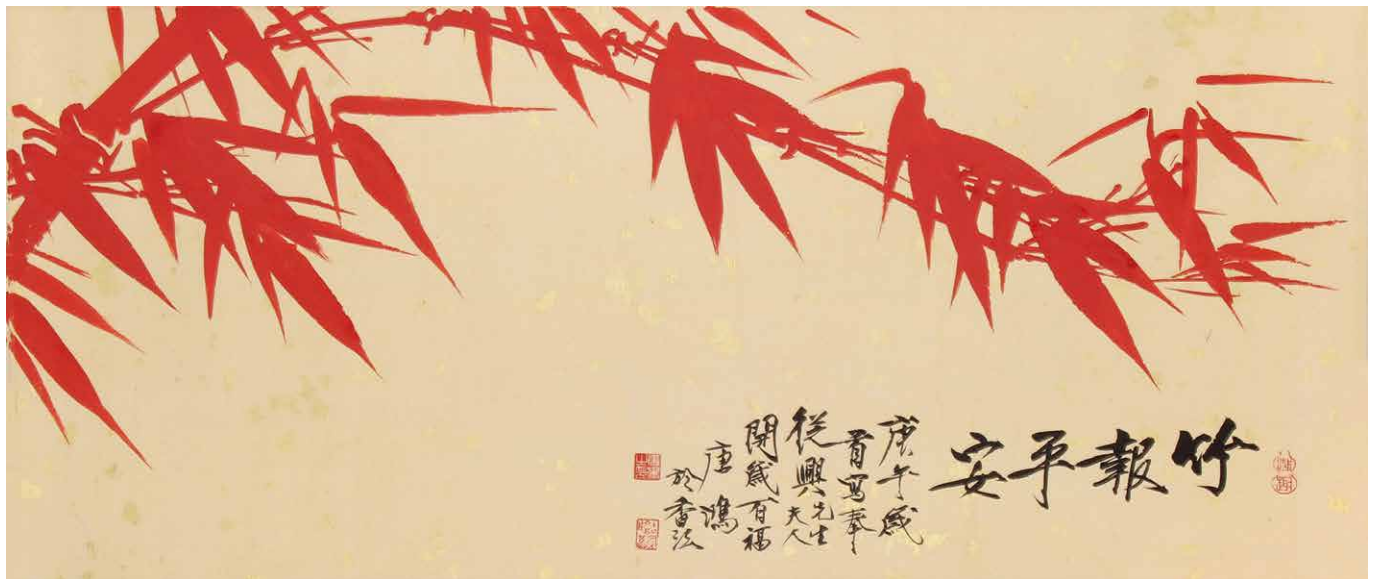 竹報平安
庚午歲
首寫奉
從興先生夫人
開歲百福
唐鴻
於香江